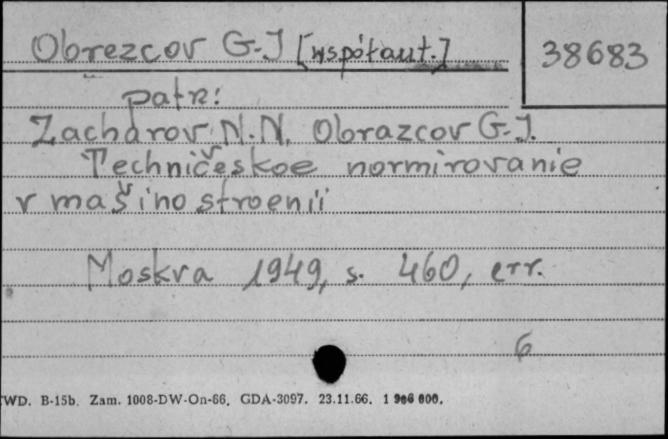 Obrezcov G.J [współaut.]
38683
patrz:
Zacharov N.N, Obrazcov G.J.
Techničeskoe normirovanie
v mašinostroenii
Moskva 1949, s. 460, err.
6
WD. B-15b. Zam. 1008-DW-On-66. GDA-3097. 23.11.66. 1 906 000.